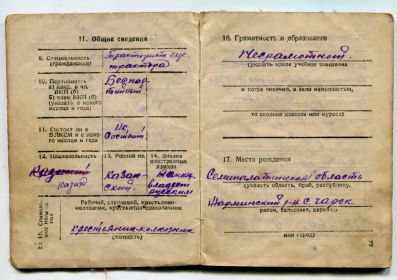 11. Общие сведения
9. Специальность
(гражданская)
Тракторист
трактора
10. Партийность
а) канд. в чл.
ВКП (б)
б) член ВКП (б)
(указать с какого
месяца и года)
Беспар-
тийный
11. Состоит ли в
ВЛКСМ и с како-
го месяца и года
Не
состоит
12. Национальность
казах
13. Родной яз.
Казах-
ский
14. Знание
иностранных
языков
владеет
русским
Рабочий, служащий, крестьянин-
колхозник, крестьянин-единоличник
крестьянин-колхозник
(указать)
16. Грамотность и образование
Неграмотный.
(указать какое учебное заведение
и когда окончил, а если неполностью,
то сколько классов или курсов)
17. Место рождения
Семипалатинская область
(указать область, край, республику,
Жарминский р-н с. Чарск
район, сельсовет, деревню
или город)
3